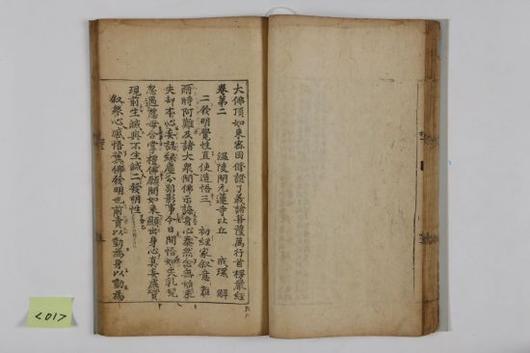 大佛頂如來密因修證了義諸菩薩萬行首楞嚴經
卷第二　溫陵開元蓮寺比丘　戒環　解
二發明覺性直使造悟三　初經家叙意
爾時阿難及諸大衆聞佛示誨身心泰然念無始來
失却本心妄認緣塵分別影事今日開悟如失乳兒
忽遇慈母合掌禮佛願聞如來顯出身心眞妄虛實
現前生滅與不生滅二發明性
叙衆心感悟冀佛發明也前責以動爲身以動爲
<01>